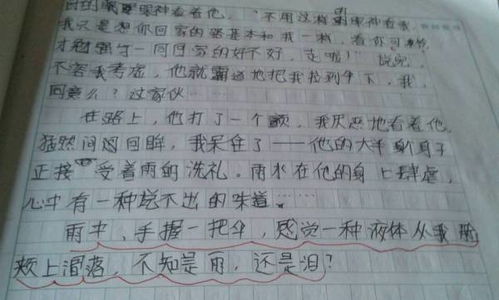 目的眼神看着他，“不用这样的眼神看我，
我只是想你回家的路基本和我一样，看你可怜
才勉强与一同回家的好不好，走啦！”说完，
不容我考虑，他就霸道地把我拉到伞下，我，
同意么？这家伙……
在路上，他打了一个颤，我厌恶地看着他，
猛然间回眸，我呆住了——他的大半身子
正接受着雨的洗礼，雨水在他的身上肆虐，
心中有一种说不出的味道……
雨中，手握一把伞，感觉一种液体从我脸
颊上滑落，不知是雨，还是泪？